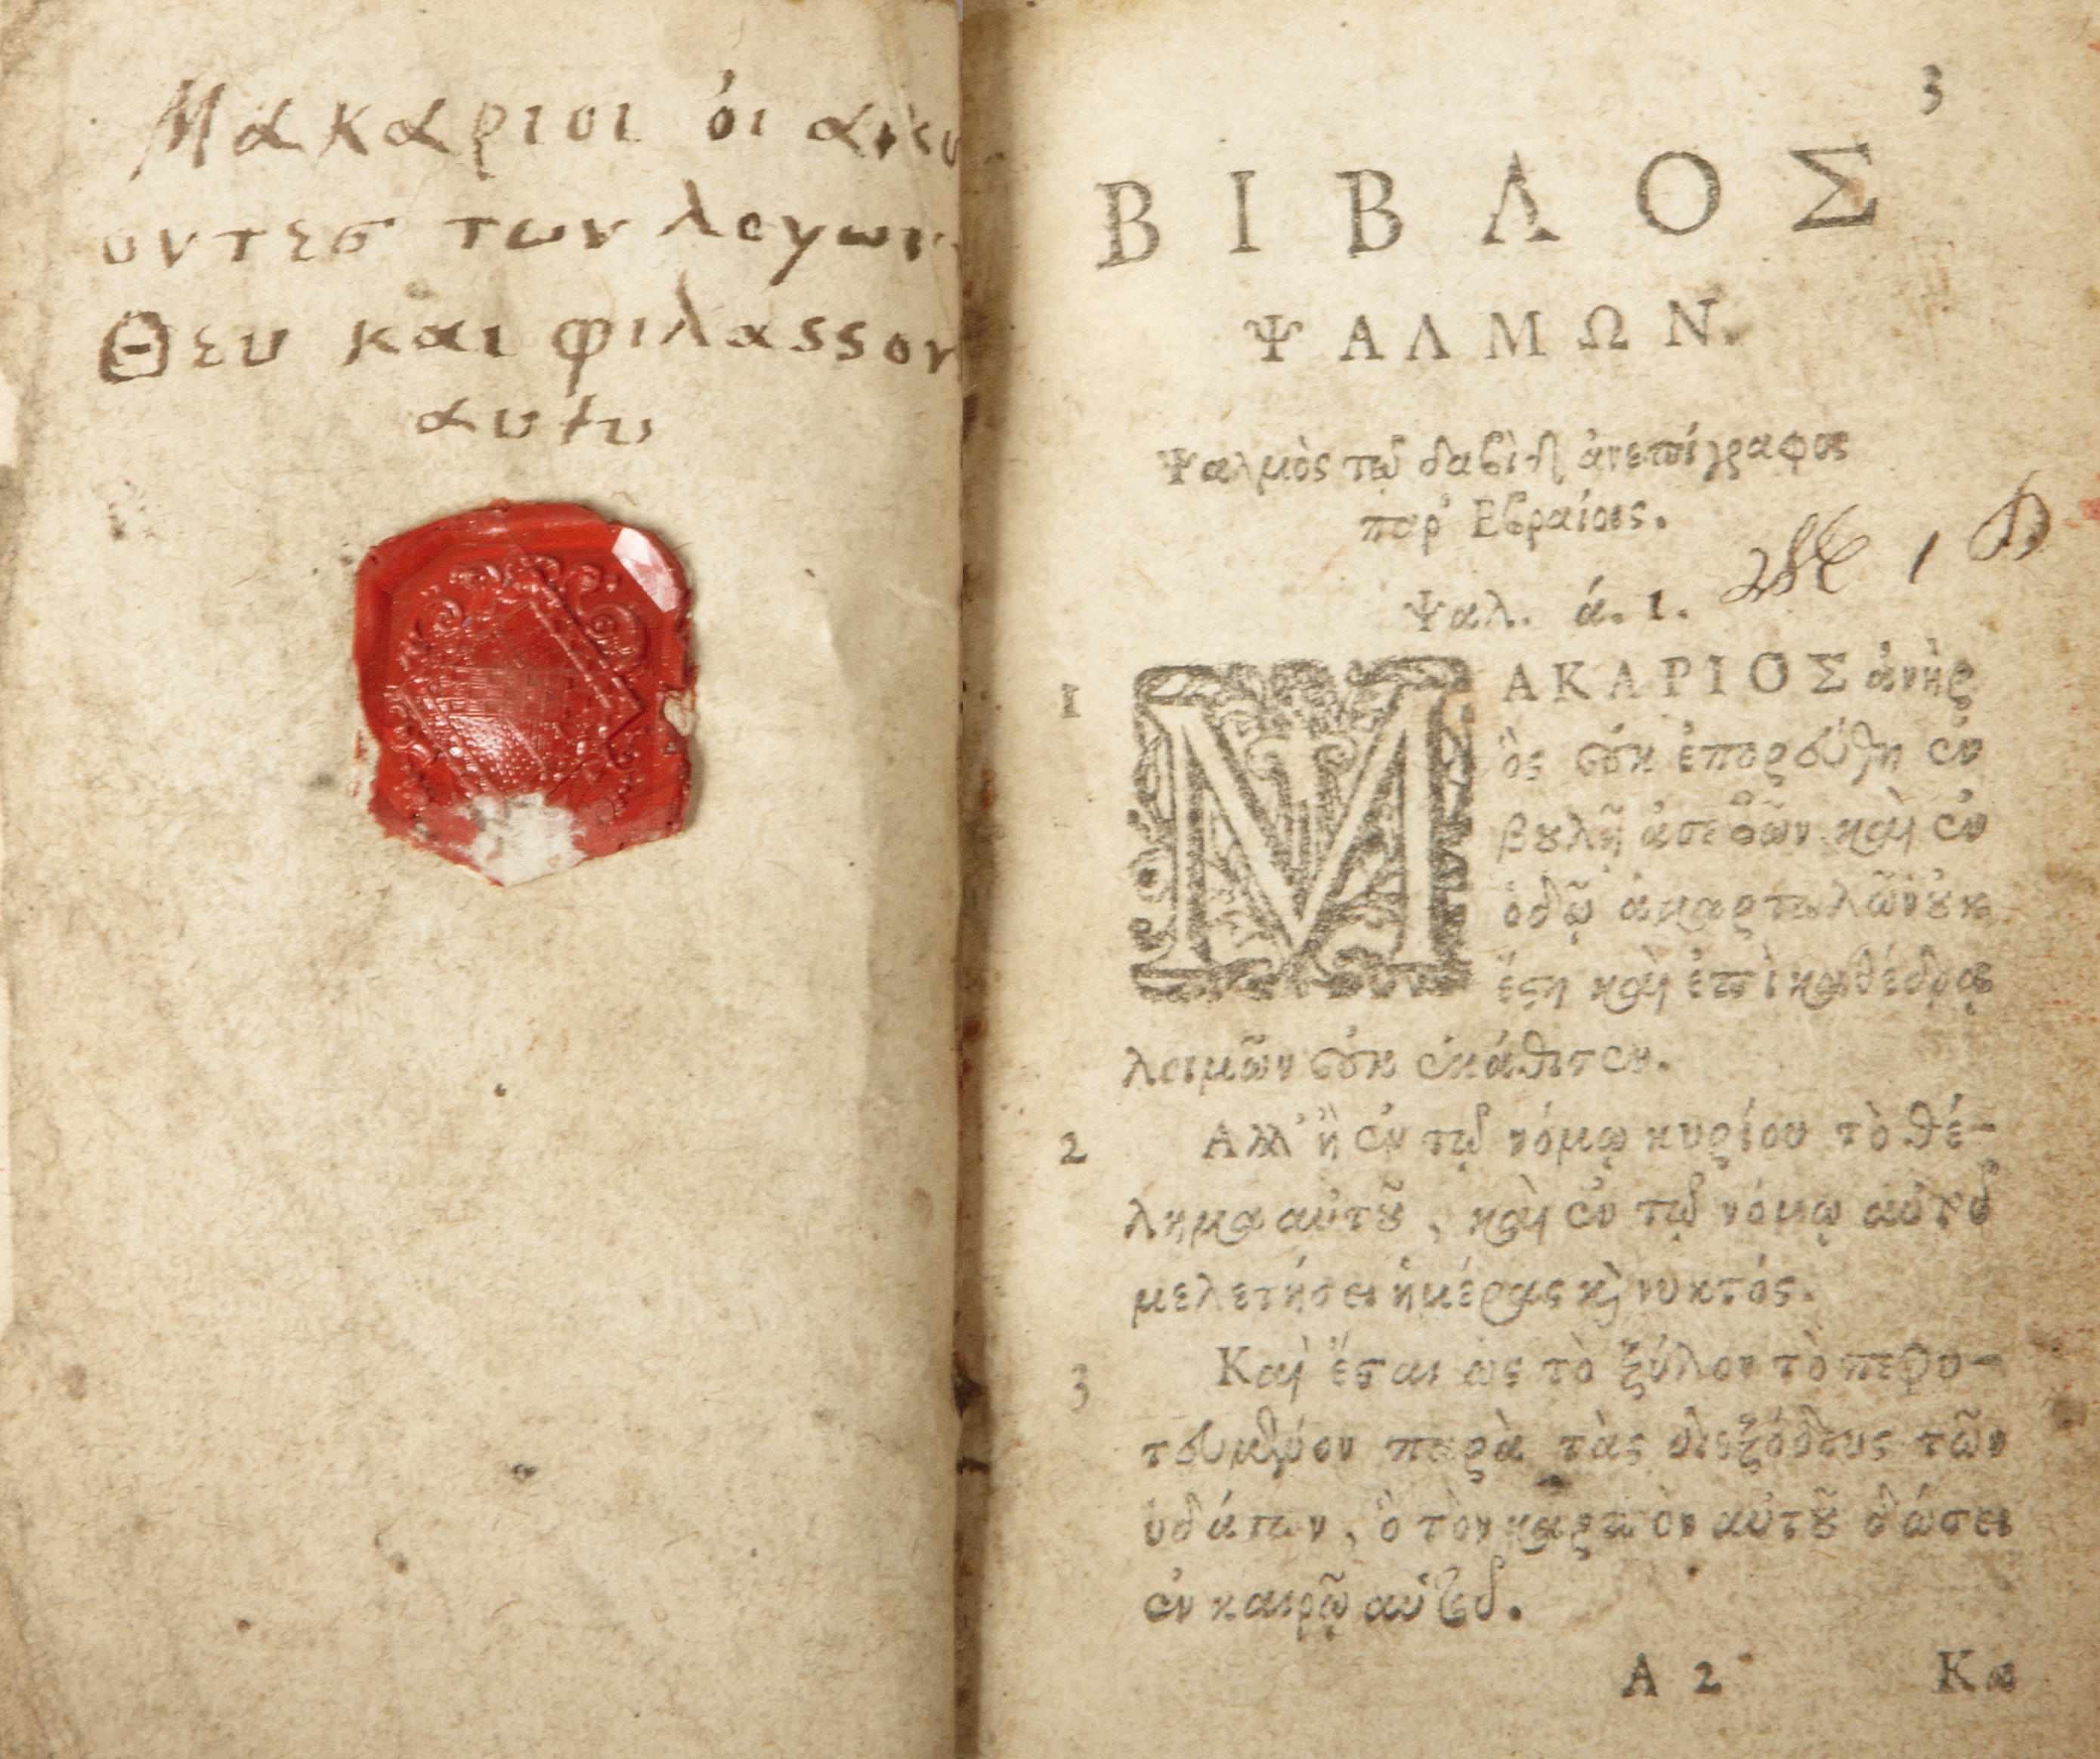 Μακαριοι ὁι ακυ
οντεσ των λογων
Θευ και φιλασσον
αυτυ
3
ΒΙΒΛΟΣ
ΨΑΛΜΩΝ.
Ψαλμὸς τῷ δαβὶδ ἀνεπίγραφος
παρ' Εβραίοις.
Ψαλ. ά. 1.
1 ΜΑΚΑΡΙΟΣ ἀνὴρ
ὃς οὐκ ἐπορεύθη ἐν
βουλῇ ἀσεβῶν καὶ ἐν
ὁδῷ ἁμαρτωλῶν οὐκ
ἔστη καὶ ἐπὶ καθέδρᾳ
λοιμῶν οὐκ ἐκάθισεν.
2 Αλλ' ἢ ἐν τῷ νόμῳ κυρίου τὸ θέ-
λημα αὐτοῦ, καὶ ἐν τῷ νόμῳ αὐτοῦ
μελετήσει ἡμέρας καὶ νυκτός.
3 Καὶ ἔσται ὡς τὸ ξύλον τὸ πεφυ-
τευμένον παρὰ τὰς διεξόδους τῶν
ὑδάτων, ὃ τὸν καρπὸν αὐτοῦ δώσει
ἐν καιρῷ αὐτοῦ.
Α 2 Και